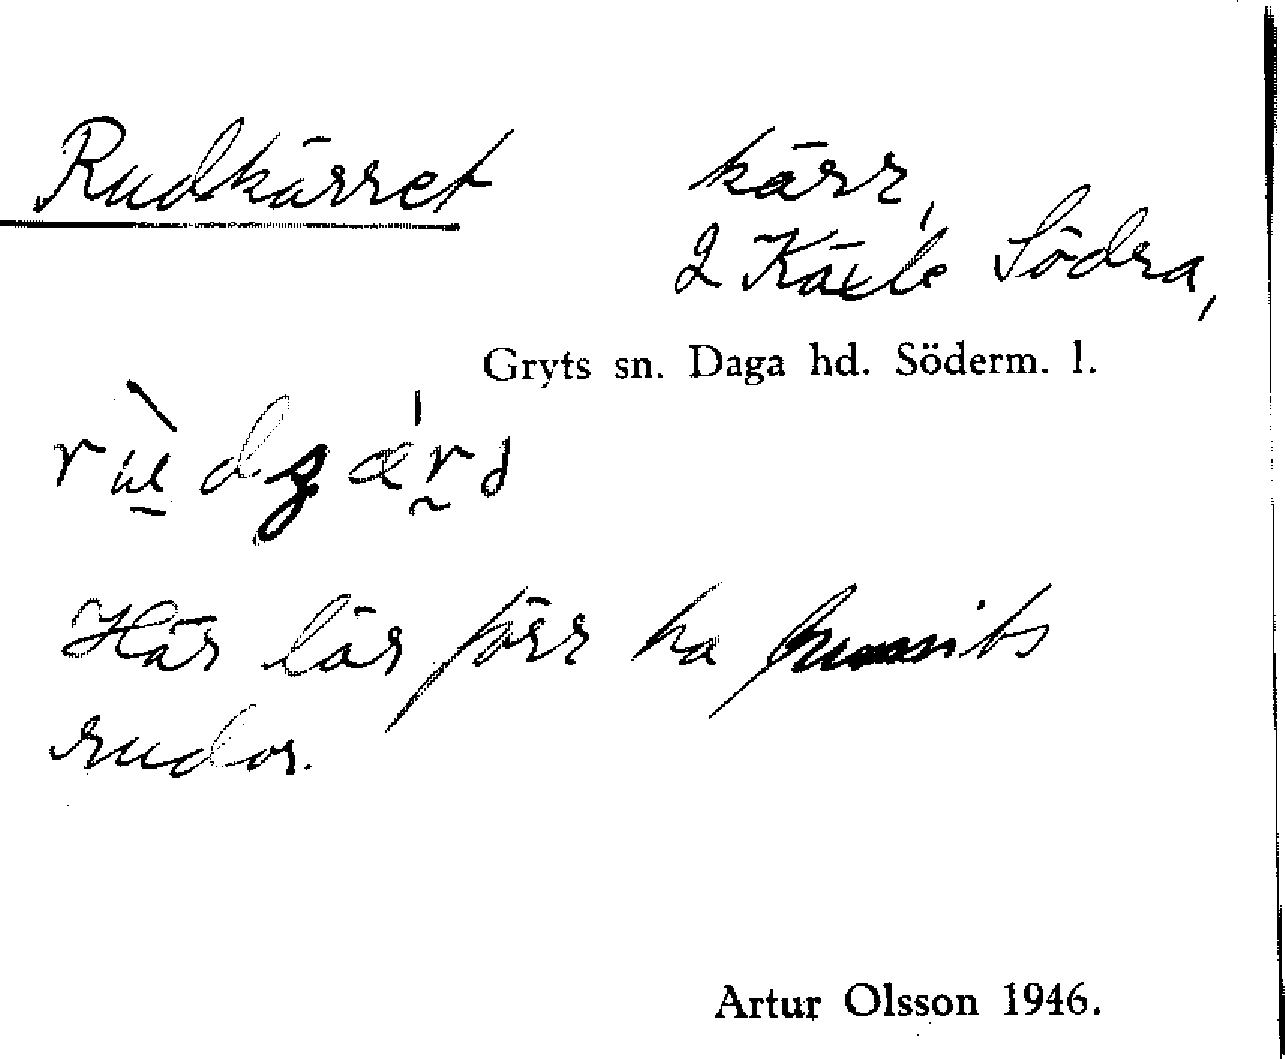 Rudkärret kärr,
2 Käxle Södra,
Gryts sn. Daga hd. Söderm. l.
Här lär förr ha funnits
rudor.
Artur Olsson 1946.